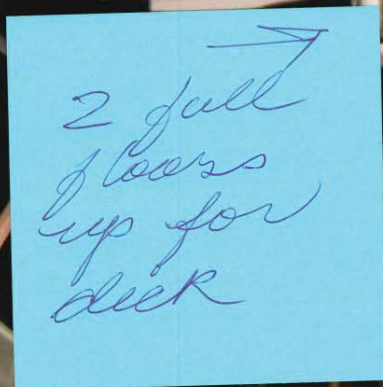 2 full
floors
up for
deck